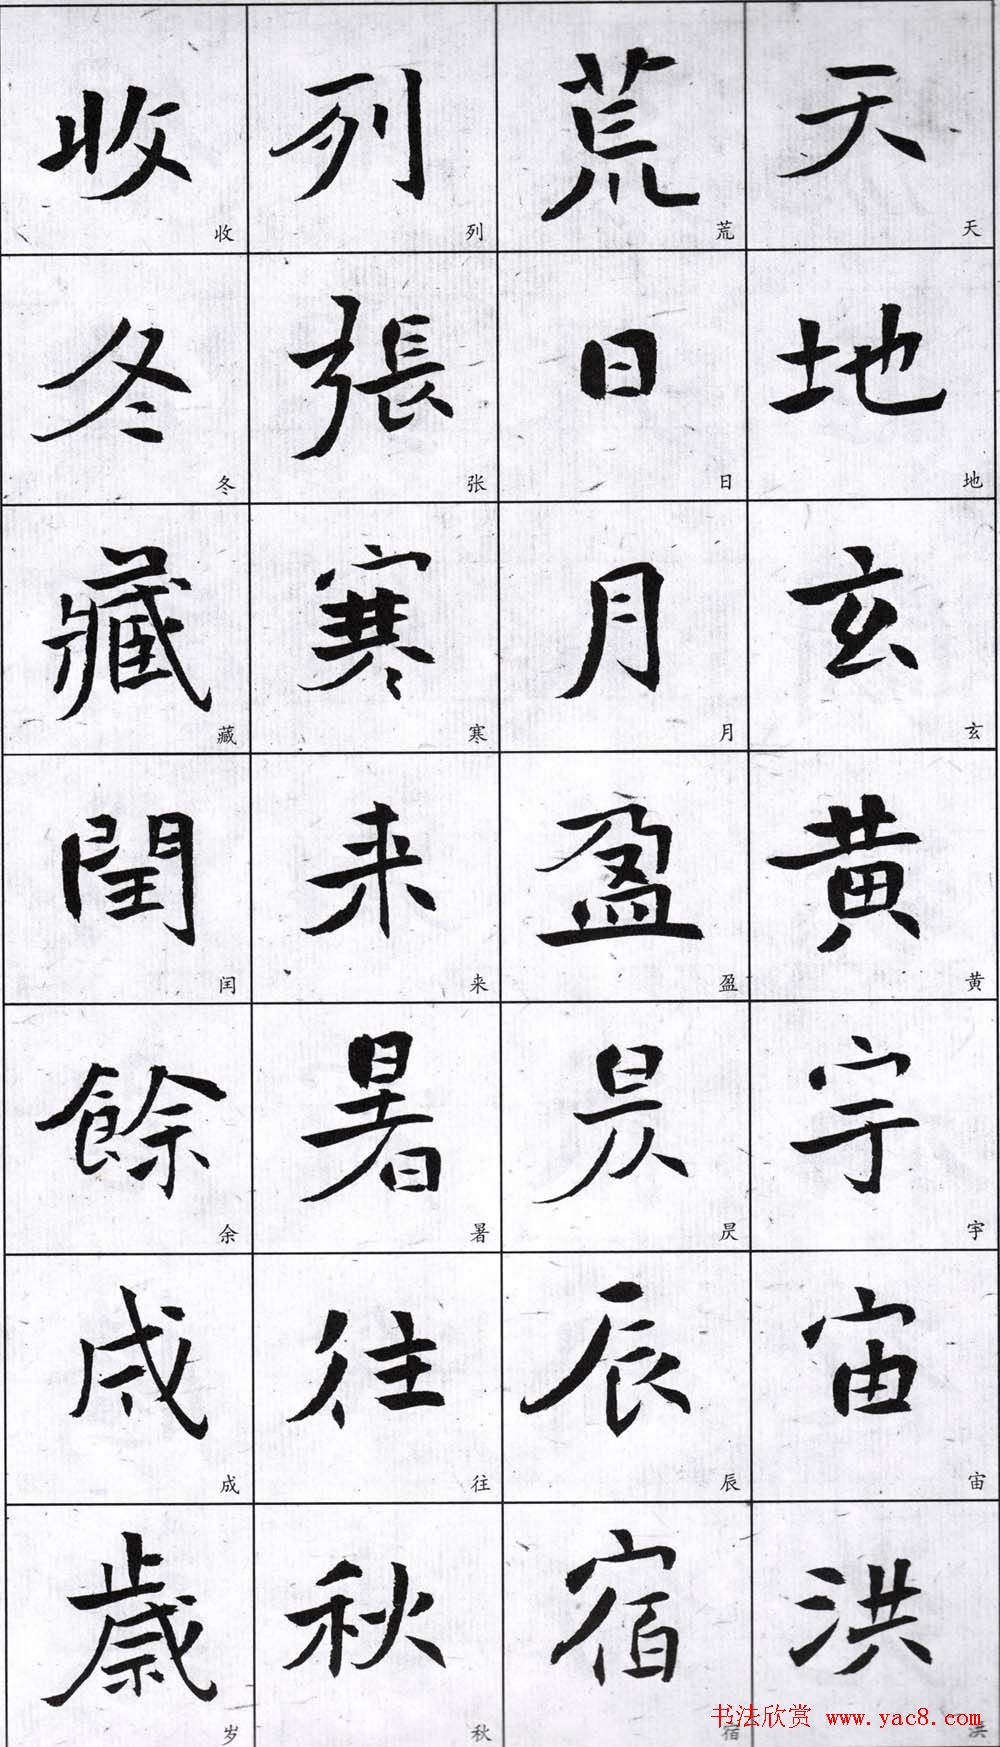 天地玄黄宇宙洪
天地玄黄宇宙洪
荒日月盈昃辰宿
荒日月盈昃辰宿
列張寒来暑往秋
列张寒来暑往秋
收冬藏閏餘成歲
收冬藏闰余成岁
书法欣赏 www.yac8.com